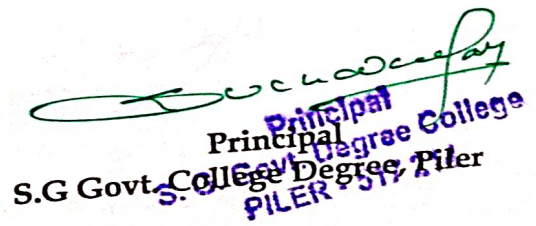 Principal
S.G Govt. College Degree, Piler
Principal
S. G. Govt. Degree College
PILER - 517 214